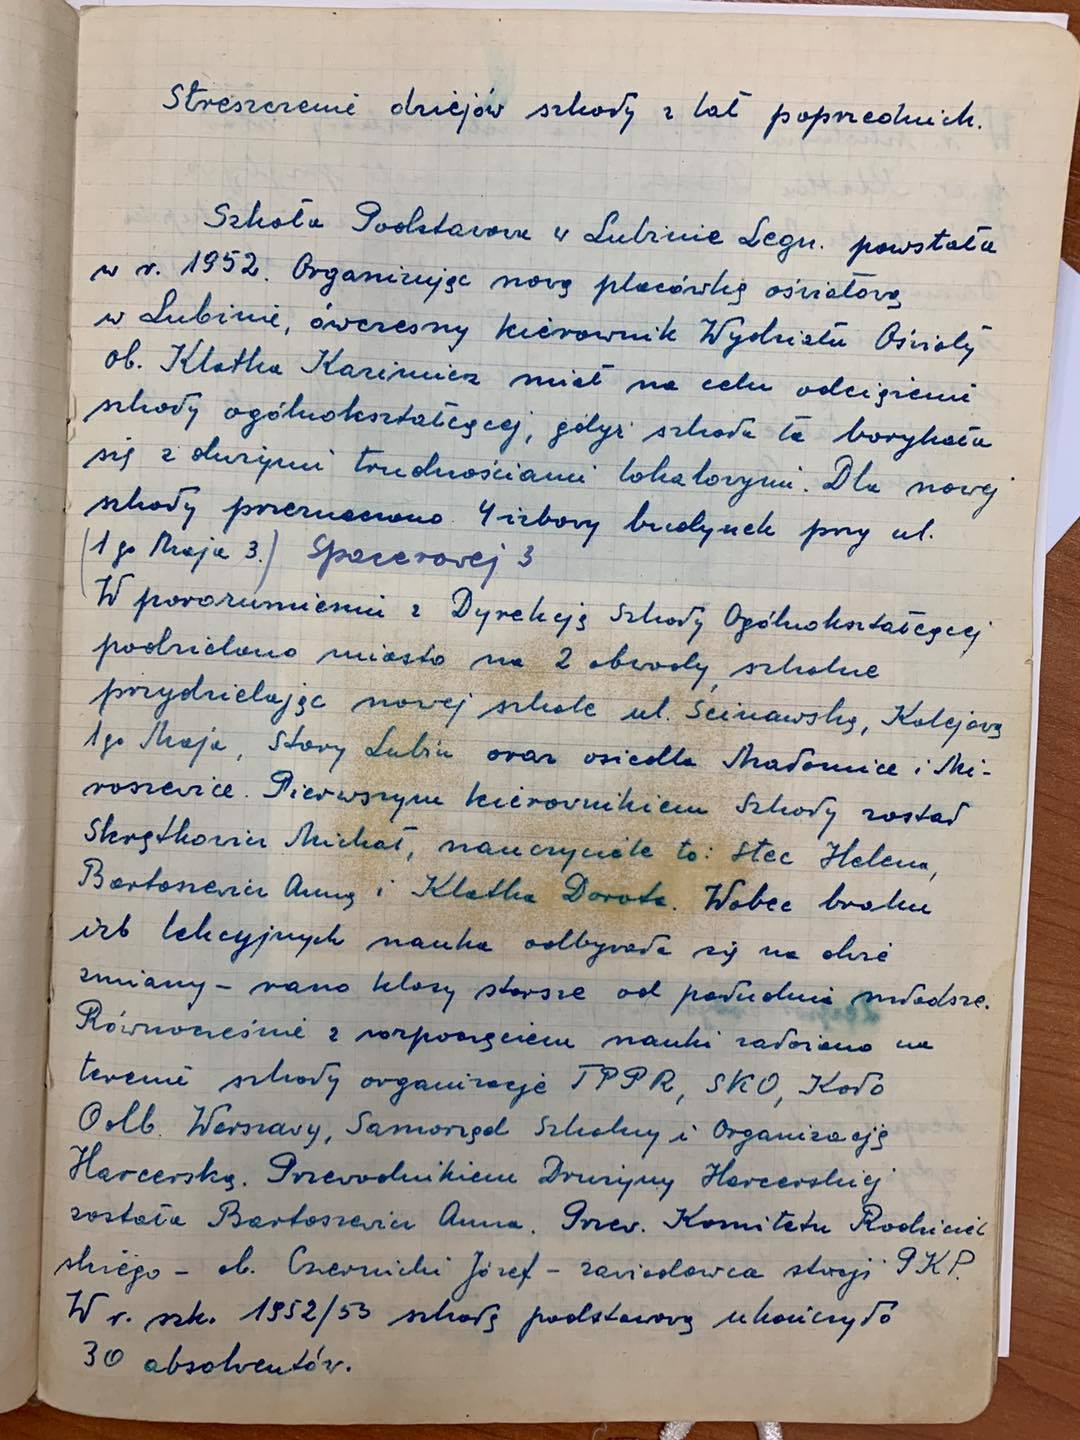 Streszczenie dziejów szkoły z lat poprzednich.
Szkoła Podstawowa w Lubinie Legn. powstała
w r. 1952. Organizując nową placówkę oświatową
w Lubinie, ówczesny kierownik Wydziału Oświaty
ob. Klatka Kazimierz miał na celu odciążenie
szkoły ogólnokształcącej, gdyż szkoła ta borykała
się z dużymi trudnościami lokalowymi. Dla nowej
szkoły przeznaczono 4 izbowy budynek przy ul.
(1 go Maja 3.) Spacerowej 3
W porozumieniu z Dyrekcją Szkoły Ogólnokształcącej
podzielono miasto na 2 obwody, szkolne
przydzielając nowej szkole ul. Ścinawską, Kolejową
1 go Maja, Stary Lubin oraz osiedla Małomice i Mi-
roszewice. Pierwszym kierownikiem Szkoły został
Skrętkowicz Michał, nauczyciele to: Stec Helena,
Bartoszewicz Anna i Klatka Dorota. Wobec braku
izb lekcyjnych nauka odbywała się na dwie
zmiany – rano klasy starsze od południa młodsze.
Równocześnie z rozpoczęciem nauki założono na
terenie szkoły organizacje TPPR, SKO, Koło
Odb. Warszawy, Samorząd Szkolny i Organizację
Harcerską. Przewodnikiem Drużyny Harcerskiej
została Bartoszewicz Anna. Przew. Komitetu Rodziciel
skiego – ob. Czernicki Józef – zawiadowca stacji PKP.
W r. szk. 1952/53 szkołę podstawową ukończyło
30 absolwentów.